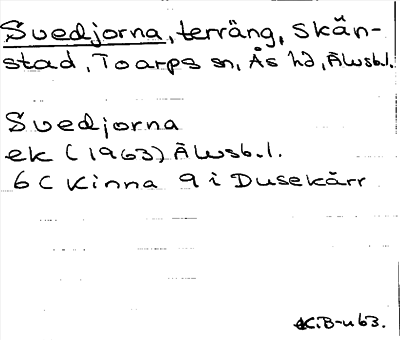 Svedjorna, terräng, Skän-
stad, Toarps sn, Ås hd, Älvsb.l.
Svedjorna
ek (1963) Älvsb.l.
6C Kinna 9 i Dusekärr
KiB-u 63.